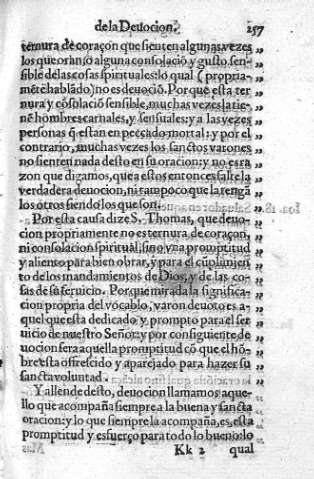 de la Deuocion. 257
ternura de coraçon que sienten algunas vezes „
los que oran, o alguna consolaciõ y gusto sen- „
sible de las cosas spirituales: lo qual (propria- „
mẽte hablãdo) no es deuociõ. Porque esta ter „
nura y cõsolaciõ sensible, muchas vezes la tie- „
nẽ hombres carnales, y sensuales: y a las vezes „
personas q̃ estan en peccado mortal: y por el „
contrario, muchas vezes los sanctos varones „
no sienten nada desto en su oracion: y no es ra „
zon que digamos, que a estos entonces falte la „
verdadera deuocion, ni tampoco que la tengã „
los otros siendo los que son. „
Por esta causa dize S. Thomas, que deuo- „
cion propriamente no es ternura de coraçon, „
ni consolacion spiritual, sino vna promptitud „
y aliento para bien obrar, y para el cũplimien „
to de los mandamientos de Dios, y de las co- „
sas de su seruicio. Porque mirada la significa- „
cion propria del vocablo, varon deuoto es a- „
quel que esta dedicado y prompto para el ser „
uicio de nuestro Señor: y por consiguiente de „
uocion sera aquella promptitud cõ que el hõ- „
bre esta offrescido y aparejado para hazer su „
sancta voluntad. „
Y allende desto, deuocion llamamos aque- „
llo que acompaña siempre a la buena y sancta „
oracion: y lo que siempre la acompaña, es, esta „
promptitud y esfuerço para todo lo bueno: lo „
Kk 2 qual